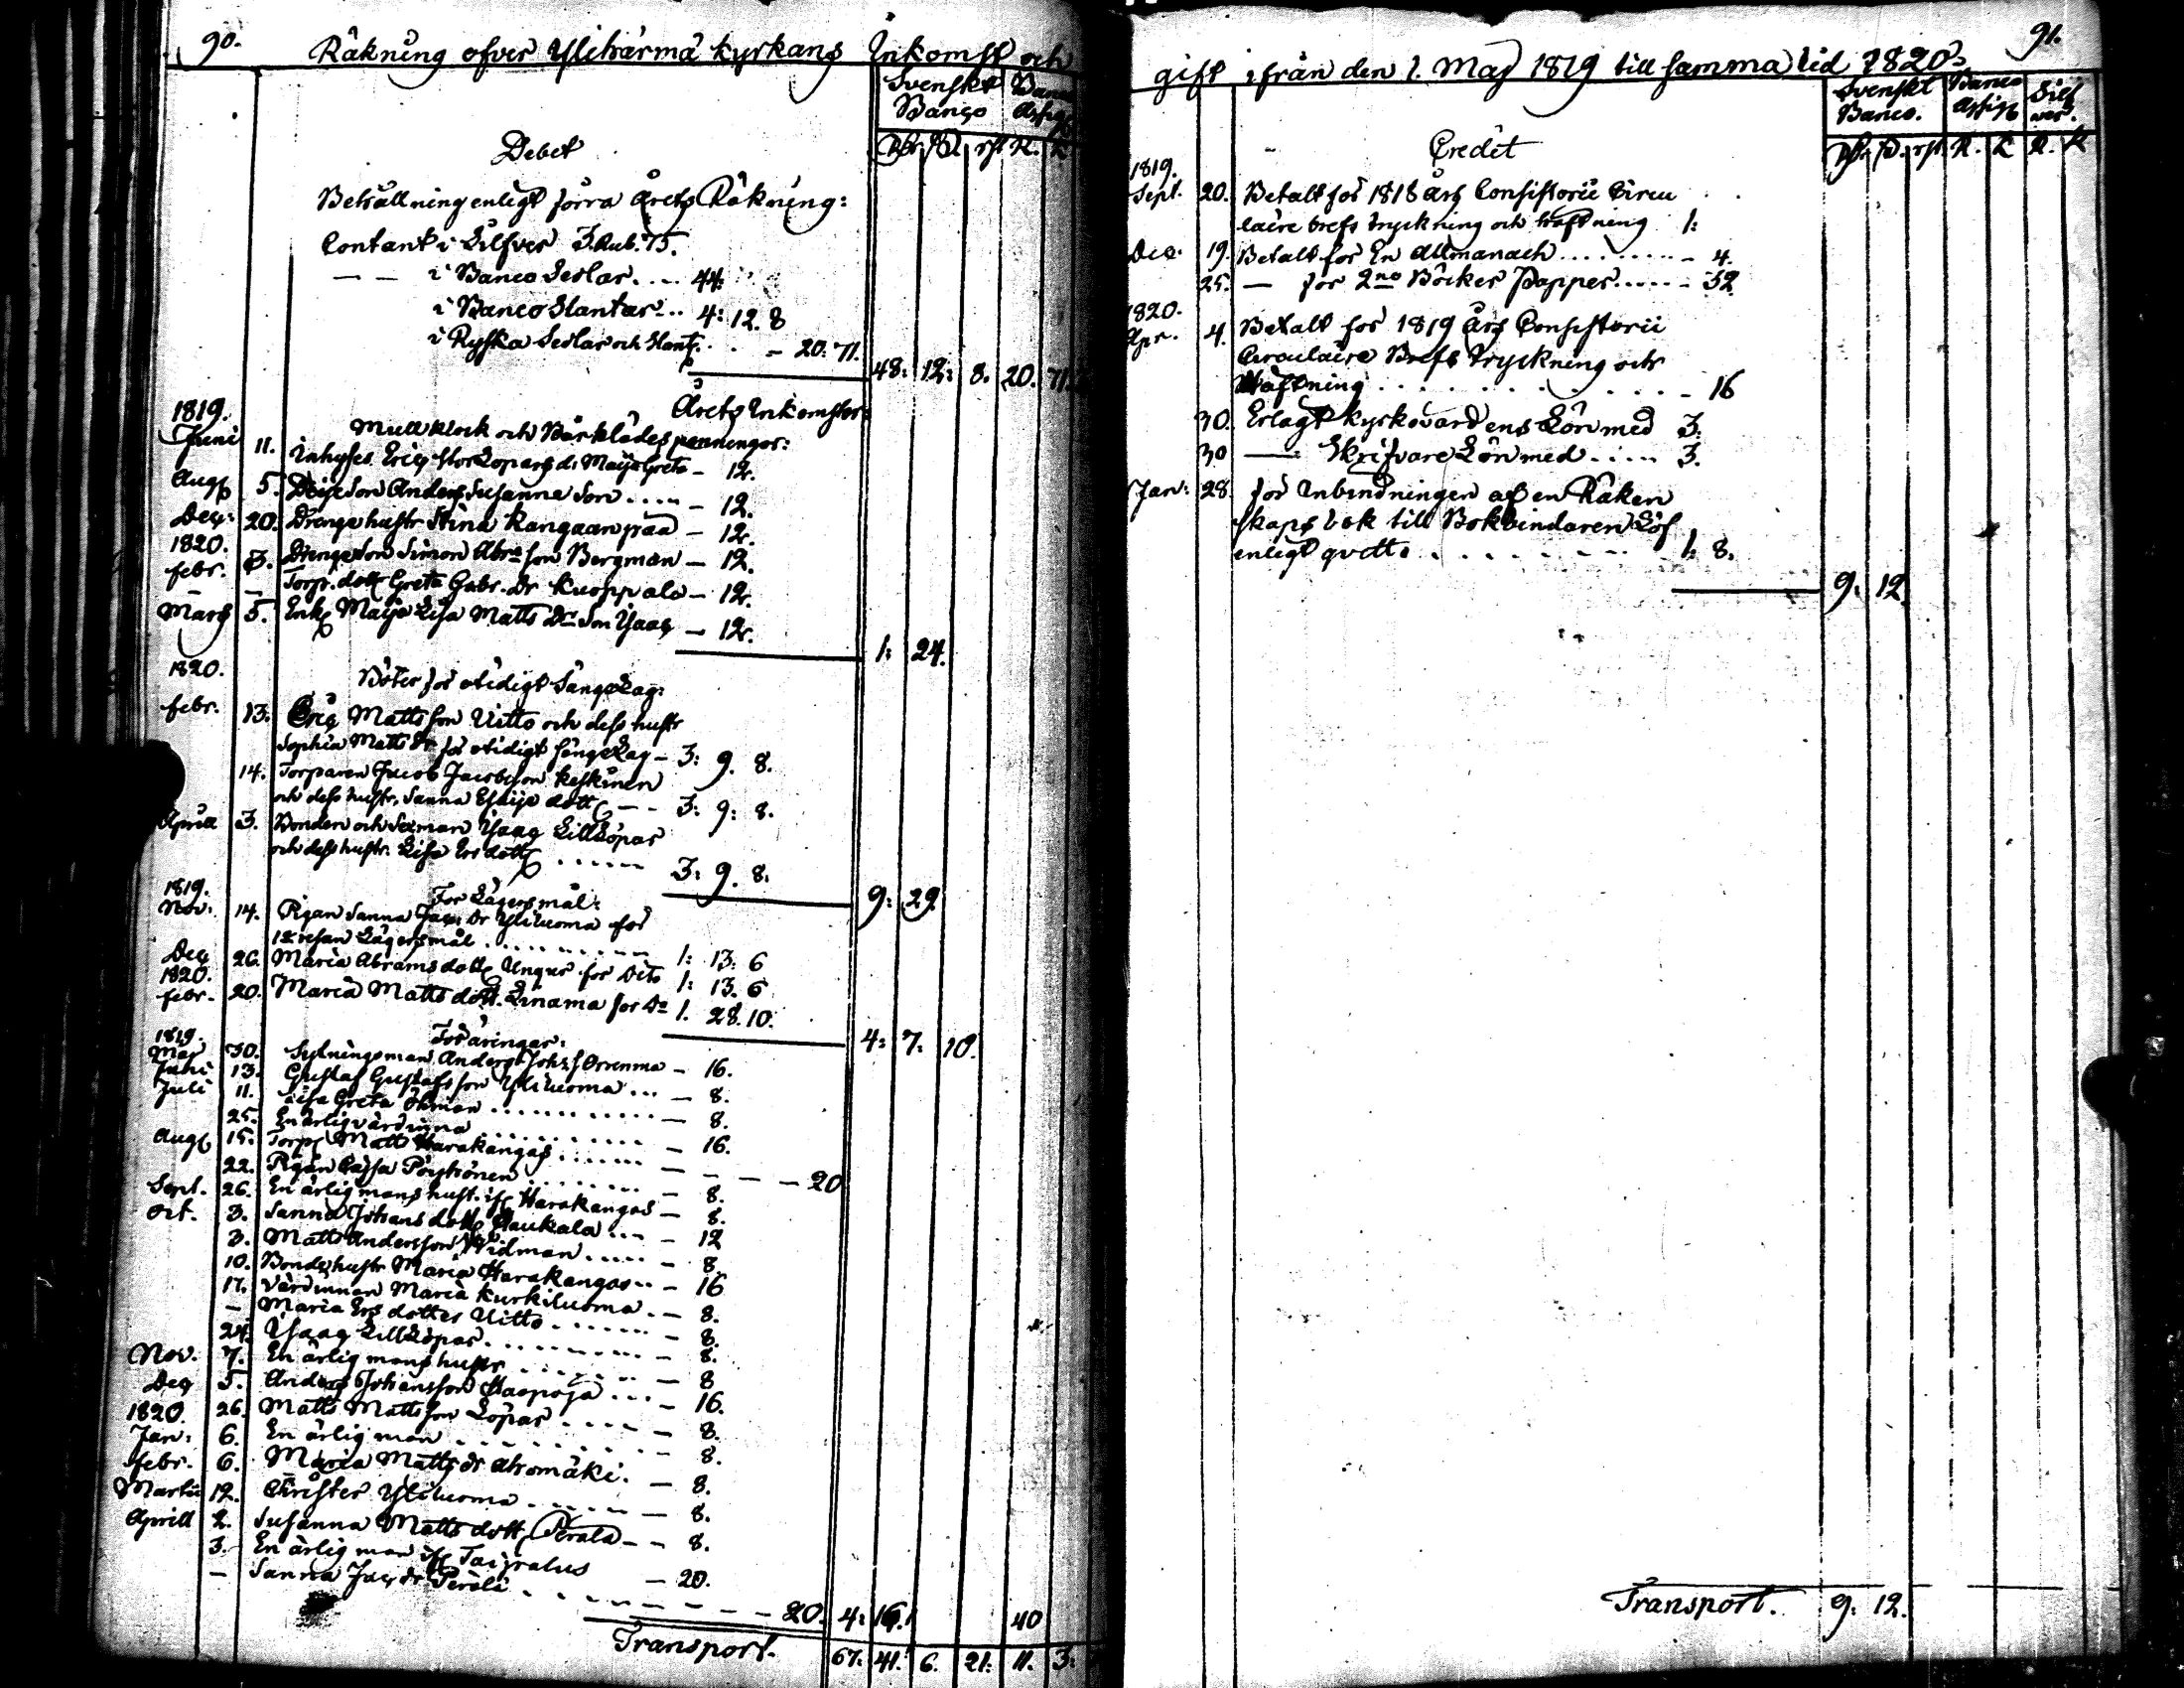 90.
Räkning öfver Ylihärmä kyrkans Inkomst och
Svenskt Banco
Banco Assign
Rdr. S. rst. R. K.
Debet
Behållning enligt förra Årets Räkning:
Contant i Silfver 3. Rub. 75.
— — i Banco Sedlar.... 44:
i Banco Slantar... 4: 12. 8
i Ryska Sedlar och Slant. . . — 20. 71.
48: 12: 8. 20. 71.
Årets Inkomster:
1819.
Mull klock och Bårklädes penningar:
Junii 11. Inhyses Eric Storlopars dr Maija Greta — 12.
Aug 5. son Anders Susanna son .... — 12.
Dec: 20. Drenge hustr Stina Kangaanpää — 12.
1820.
febr. 3. Drenge son Simon Abr.s son Bergman — 12.
— Torp. dottr Greta Gabr. Dr Kuoppala — 12.
Mars 5. Enk. Maija Lisa Matts Dr son Isaac — 12.
1: 24.
1820.
Böter för otidigt Sängelag:
febr. 13. Eric Matts son Uitto och dess hustr
Sophia Matts dr för otidigt sängelag — 3: 9. 8.
14. Torparen Jacob Jacobsson Keskinen
och dess hustr. Sanna Esaije dott — — 3: 9: 8.
Aprill 3. Bonden och Sexman Isaac Lillköpar
och dess hustr. Lisa Ers dott ...... 3: 9. 8.
9: 29
1819.
För Lägersmål:
Nov: 14. Pigan Sanna Jac: Dr Yliluoma för
1a resan Lägersmål .......... 1: 13: 6
Dec 26. Maria Abrams dott Ungur för Dito 1: 13. 6
1820.
febr. 20. Maria Matts dott. Linama för Do 1. 28. 10.
4: 7: 10.
1819.
Föräringar:
Maj 30. Sytningsman Anders Joh: s Orrenma — 16.
Juni 13. Gustaf Gustafs son Yliluoma ... — 8.
Juli 11. Lisa Greta Öhman ........... — 8.
25. En ärlig värdinna .......... — 16.
Aug 15. Torp Matts Harakangas ....... — — — — 20
22. Pigan Cajsa Pöyhönen ........ — 8.
Sept. 26. En ärlig mans hust. if Harakangas — 8.
Oct. 3. Sanna Johans dott Haukala ... — 12
3. Matts Andersson Widman ..... — 8.
10. Bonde hustr Maria Harakangas .. — 16
17. Värdinnan Maria Kurkiluoma . — 8.
— Maria Ers dotter Uitto ...... — 8.
24. Isaac Lillköpar .......... — 8.
Nov. 7. En ärlig mans hustr ........ — 8
Dec 5. Anders Johansson Haapoja ... — 16.
1820. 26. Matts Matts son Löpar .... — 8.
Jan: 6. En ärlig man .......... — 8.
febr. 6. Maria Matts dr Ahomäki. — 8.
Martii 12. Christer Yliluoma ...... — 8.
Aprill 2. Susanna Matts dott Perala — — 8.
3. En ärlig man if Taipalus — 20.
— Sanna Jac dr Perälä ....... — 20. 4: 16. 40
Transport. 67: 41. 6. 21: 11. 3:
91.
gift ifrån den 1. Maj 1819 till samma tid 1820.
Svenskt Banco.
Banco Assign
Silfver.
Rdr. S. rst. R. K. R. K
Credit
1819.
Sept. 20. Betalt för 1818 års Consistorii Circu
laire brefs tryckning och häftning 1:
Dec. 19. Betalt för En Allmanach ......... — 4.
25. — för 2no Böcker Papper ...... — 32
1820.
Apr. 4. Betalt för 1819 Års Consistorii
Circulaire Brefs tryckning och
Häftning .......... — 16
30. Erlagt kyrkovärdens Lön med 3:
30 — Skrifvare Lön med ..... 3.
Jan: 28. för Inbindningen af en Räken
skaps bok till Bokbindaren Löf
enligt qvitto ......... 1: 8.
9: 12.
Transport. 9: 12.